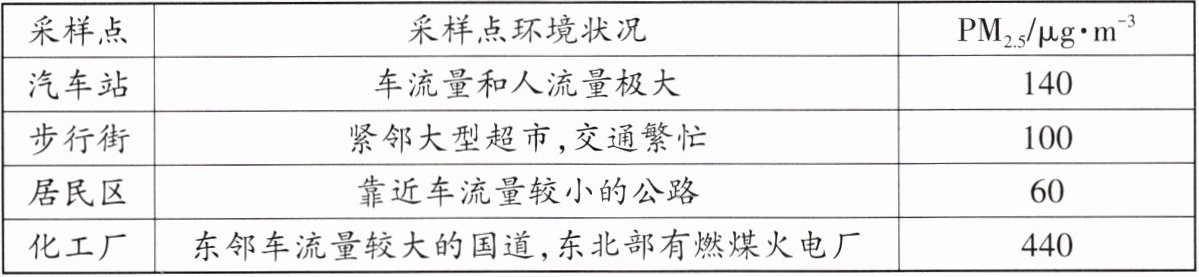 采样点 采样点环境状况 PM2.5/μg·m⁻³
汽车站 车流量和人流量极大 140
步行街 紧邻大型超市,交通繁忙 100
居民区 靠近车流量较小的公路 60
化工厂 东邻车流量较大的国道,东北部有燃煤火电厂 440